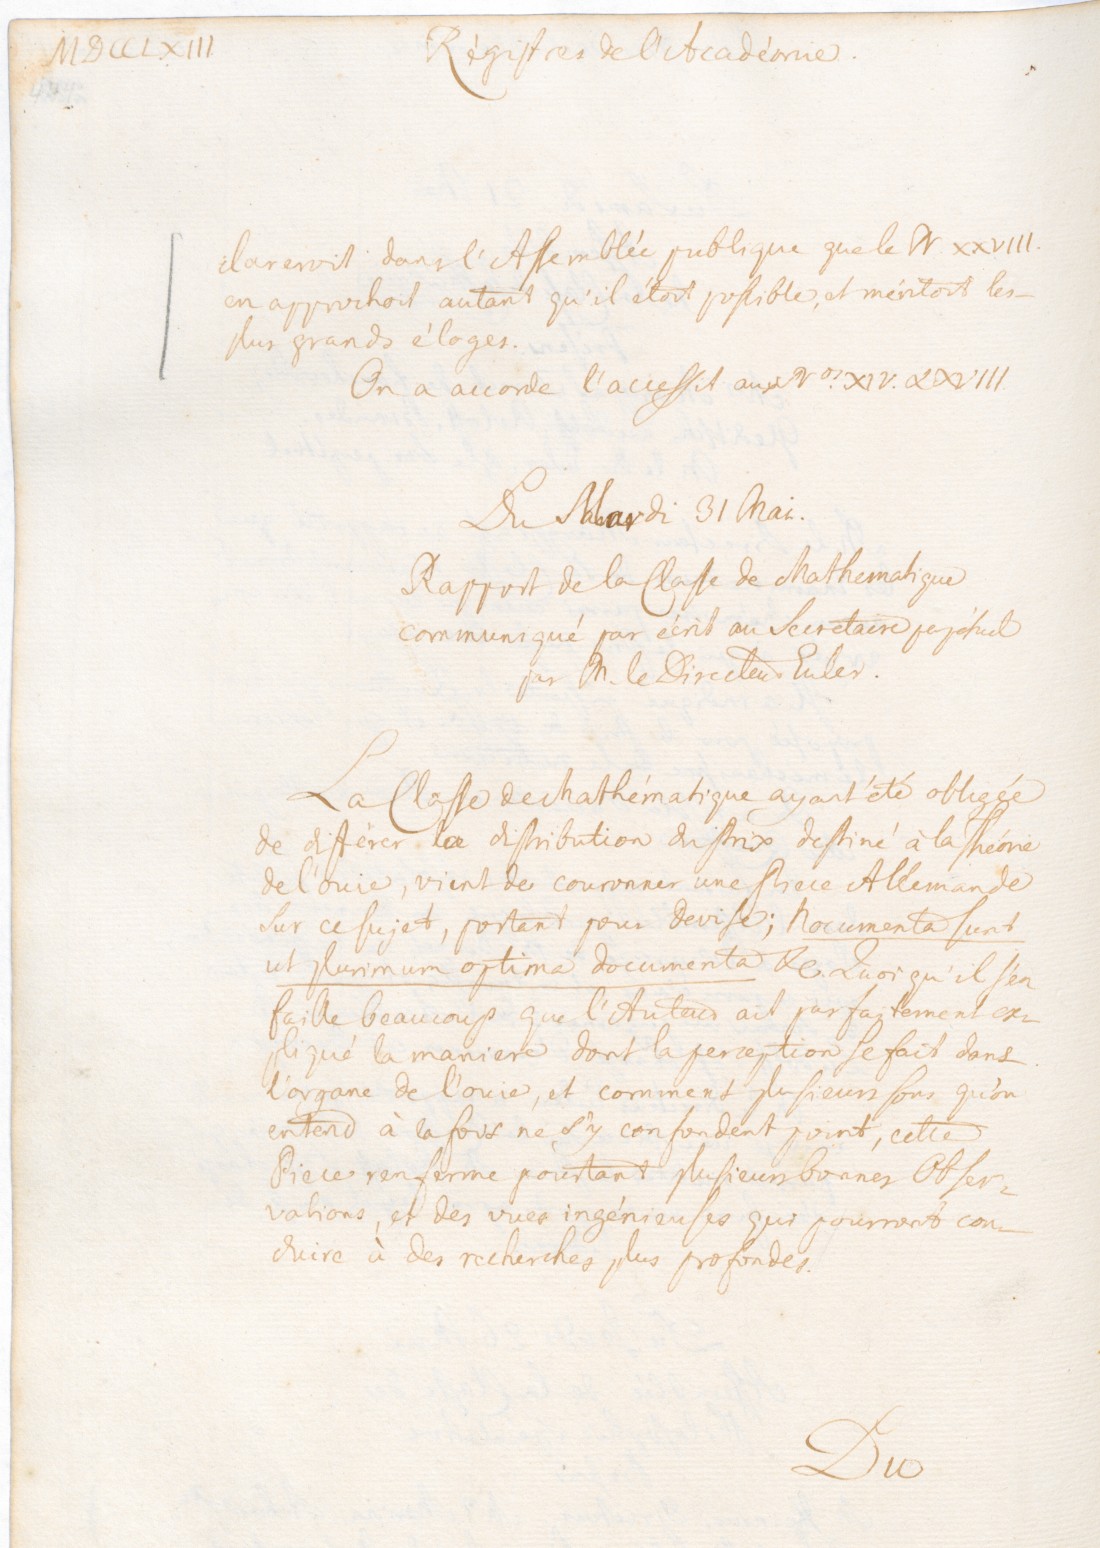 MDCCLXIII
Régistres de l'Académie.
clareroit dans l'Assemblée publique que le N. XXVIII.
en approchoit autant qu'il étoit possible, et méritoit les
plus grands éloges.
On a accorde l'accessit aux Nos. XIV. & XVIII.
Du Mardi 31 Mai.
Rapport de la Classe de Mathematique
communiqué par écrit au Secretaire perpétuel
par M. le Directeur Euler.
La Classe de Mathématique ayant été obligée
de différer la distribution du prix destiné à la Théorie
de l'ouie, vient de couronner une Piece Allemande
sur ce sujet, portant pour devise; Nocumenta sunt
ut plurimum optima documenta &c. Quoiqu'il s'en
faille beaucoup que l'Auteur ait parfaitement ex-
pliqué la maniere dont la perception se fait dans
l'organe de l'ouie, et comment plusieurs sons qu'on
entend à la fois ne s'y confondent point, cette
Piece renferme pourtant plusieurs bonnes Obser-
vations, et des vues ingénieuses qui pourront con-
duire à des recherches plus profondes.
Du